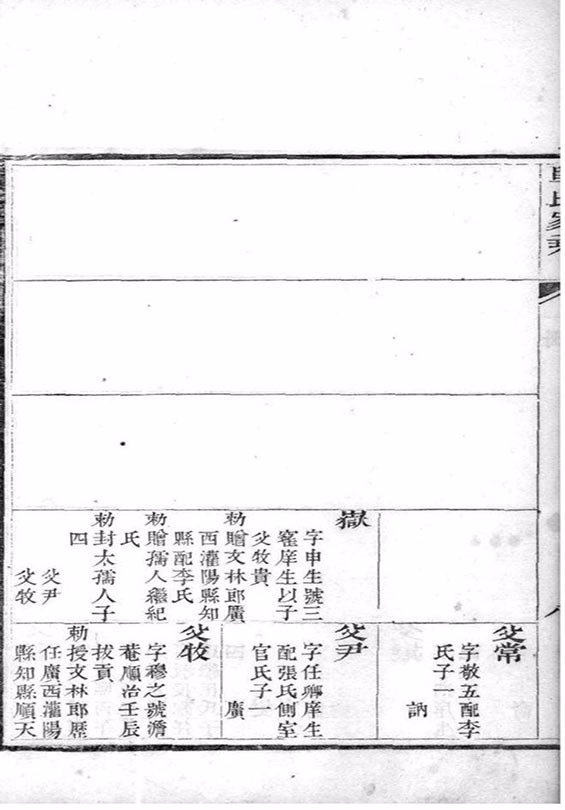 氏家
八
嶽
字申生號三
庠生以子
牧貴
勅贈文林郎廣
西灌陽縣知
縣配李氏
勅贈孺人繼紀
氏
勅封太孺人子
四
尹
牧
常
字敬五配李
氏子一
訥
尹
字任卿庠生
配張氏側室
官氏子一
廣
牧
字穆之號澹
菴順治壬辰
拔貢
勅授文林郎歷
任廣西灌陽
縣知縣順天